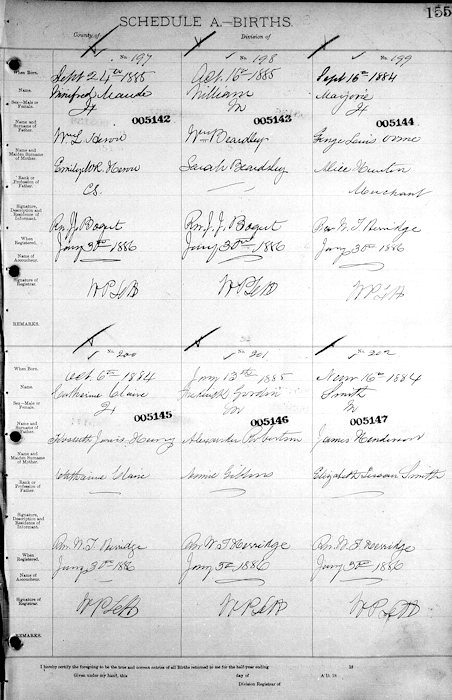 155
SCHEDULE A.—BIRTHS.
County of
Division of
No. 197
No. 198
No. 199
When Born.
Sept 24th 1885
Oct. 16th 1885
Sept 16th 1884
Name.
Winifred Maude
William
Marjorie
Sex—Male or Female.
F
M
F
005142
005143
005144
Name and Surname of Father.
Wm L
Wm Beardsley
George Louis Orme
Name and Maiden Surname of Mother.
Emily
Sarah Beardsley
Alice
Rank or Profession of Father.
C.S.
Merchant
Signature, Description and Residence of Informant.
Rev. J. J. Bogert
Rev. J. J. Bogert
Rev W. T. Herridge
When Registered.
Jany 30th 1886
Jany 30th 1886
Jany 30th 1886
Name of Accoucheur.
Signature of Registrar.
W P Lett
W P Lett
W P Lett
REMARKS.
No. 200
No. 201
No. 202
When Born.
Oct. 6th 1884
Jany 13th 1885
16th 1884
Name.
Catherine Claire
Gordon
Smith
Sex—Male or Female.
F
M
M
005145
005146
005147
Name and Surname of Father.
Jarvis Henry
Alexander Robertson
James Henderson
Name and Maiden Surname of Mother.
Catharine Claire
Annie Gibbons
Elizabeth Susan Smith
Rank or Profession of Father.
Signature, Description and Residence of Informant.
Rev. W. T. Herridge
Rev W. T. Herridge
Rev. W. T. Herridge
When Registered.
Jany 30th 1886
Jany 30th 1886
Jany 30th 1886
Name of Accoucheur.
Signature of Registrar.
W P Lett
W P Lett
W P Lett
REMARKS.
I hereby certify the foregoing to be the true and correct entries of all Births returned to me for the half-year ending 18
Given under my hand, this day of A.D. 18
Division Registrar of